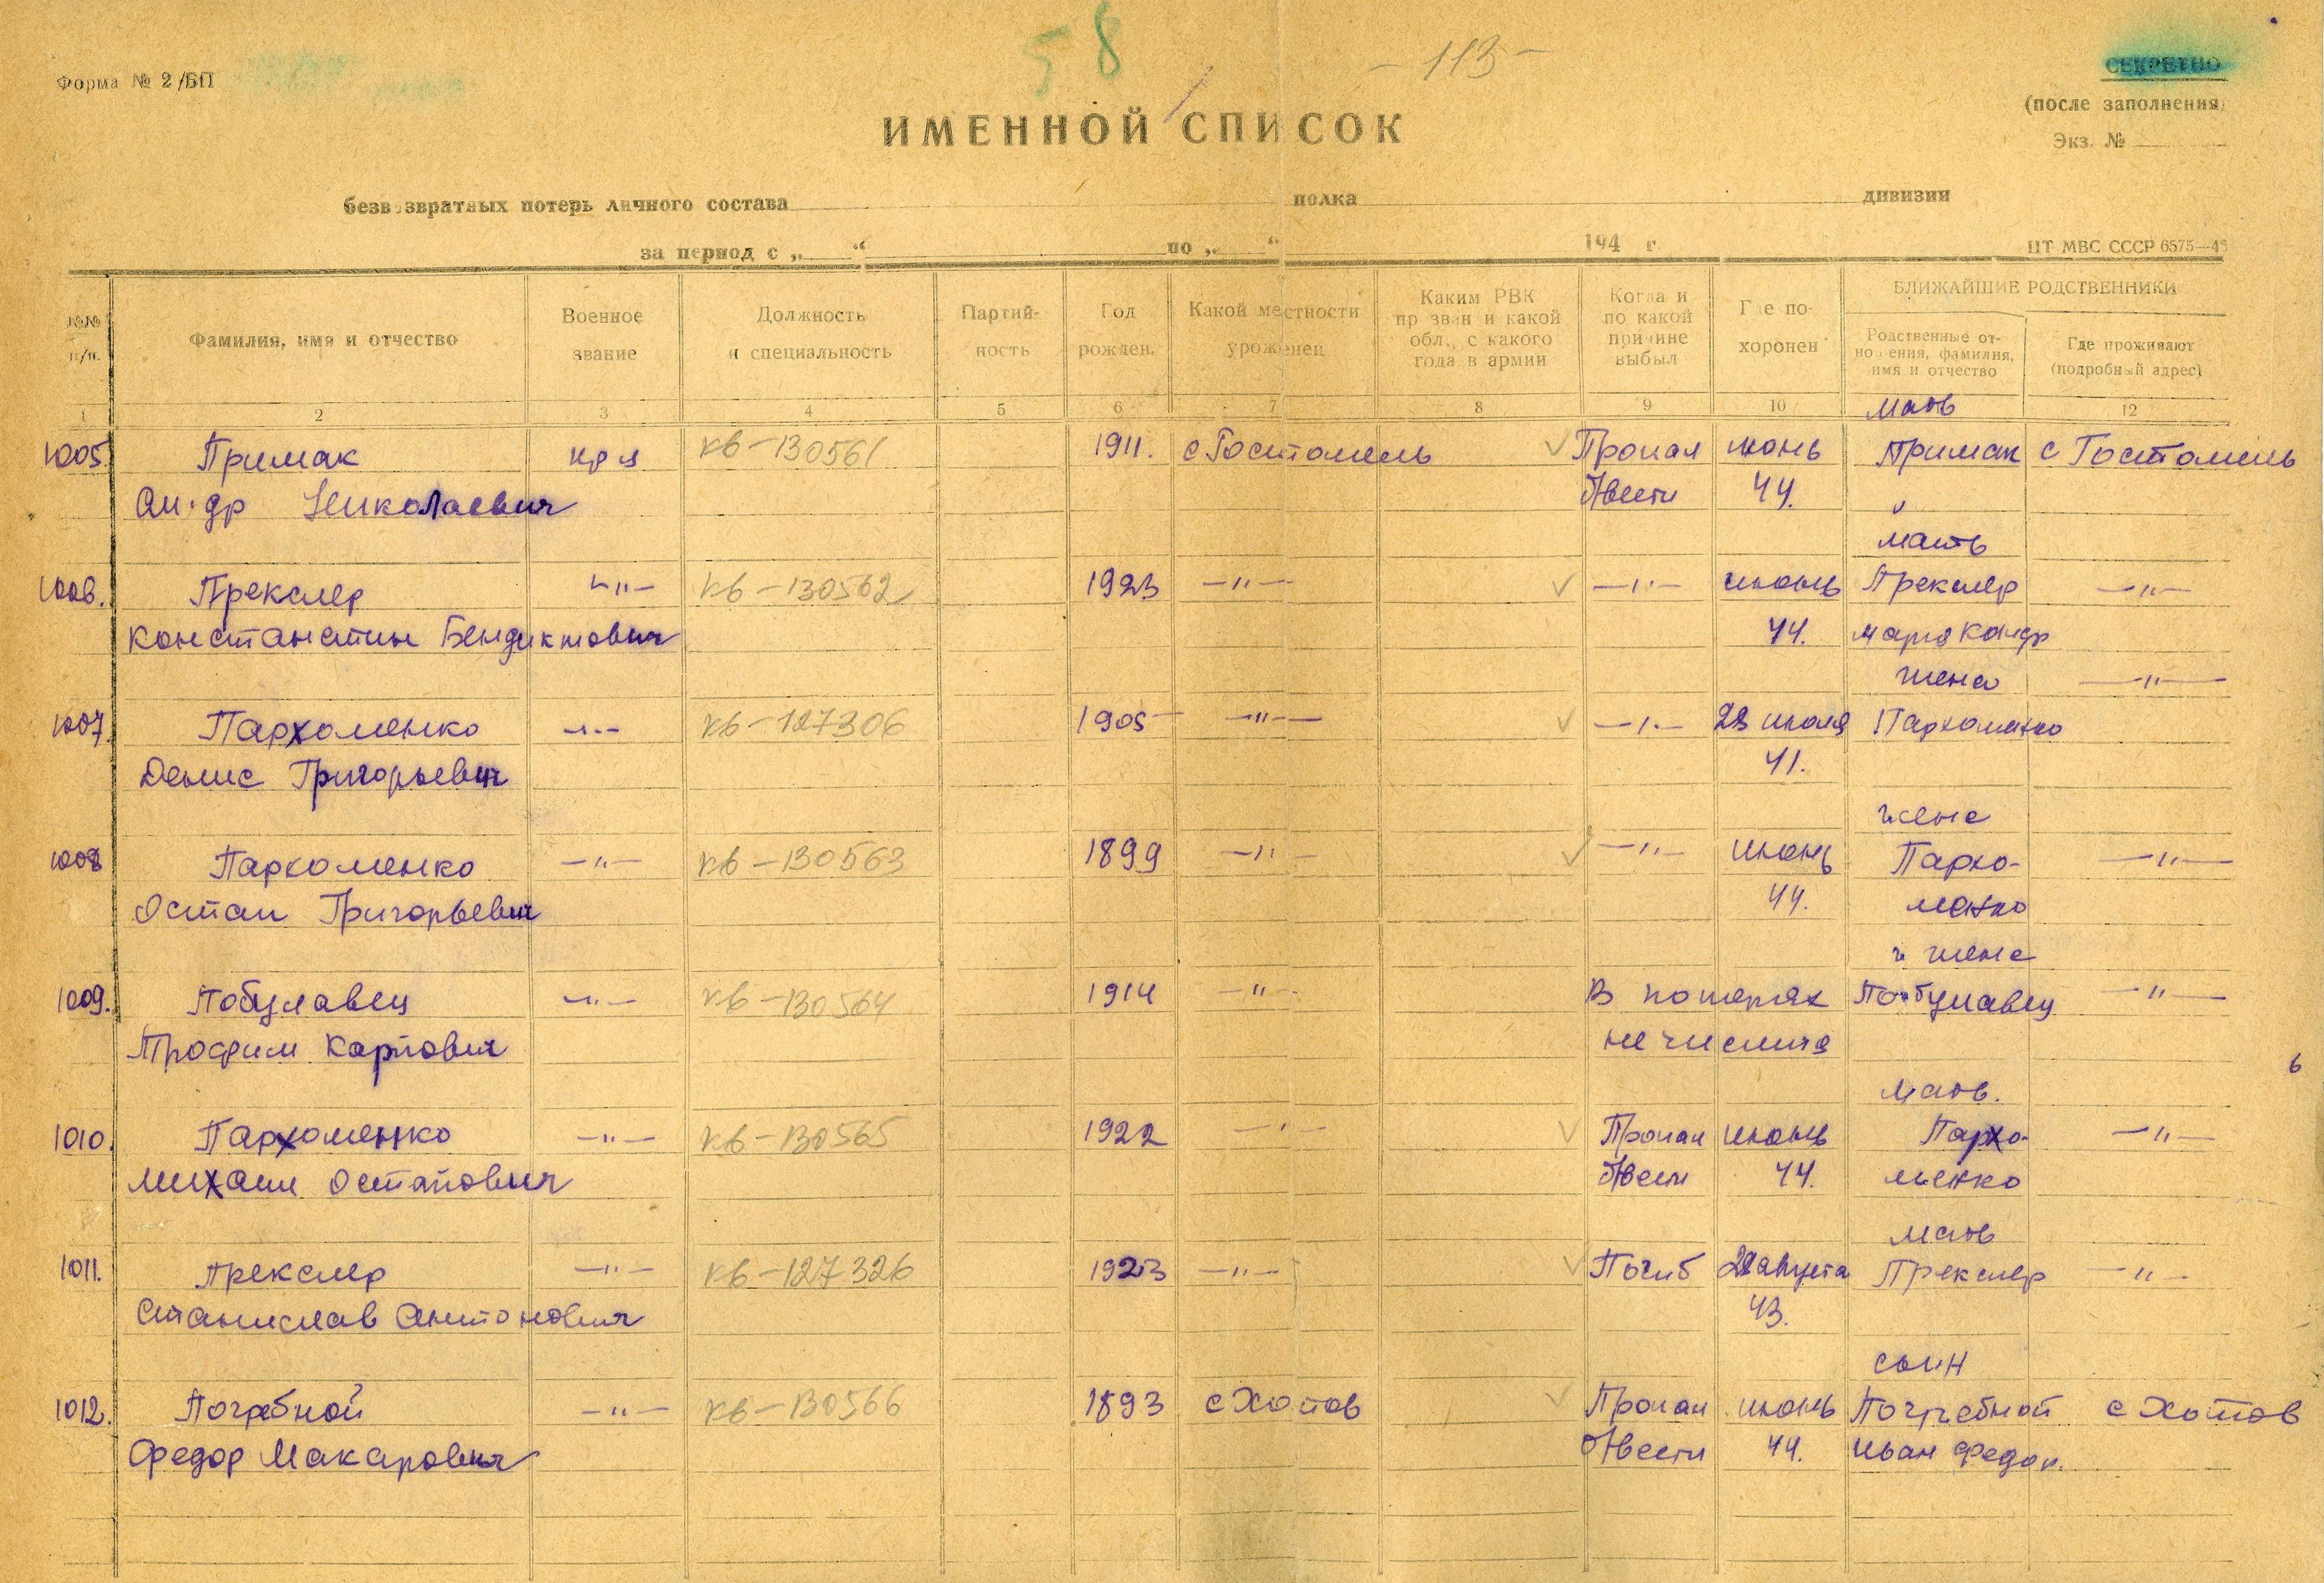 58
- 113 -
Форма № 2/БП
СЕКРЕТНО
(после заполнения)
Экз. №
ИМЕННОЙ СПИСОК
безвозвратных потерь личного состава полка дивизии
за период с „ “ по „ “ 194 г.
ЦТ МВС СССР 6575—46
№№ п/п.
Фамилия, имя и отчество
Военное звание
Должность и специальность
Партийность
Год рожден.
Какой местности уроженец
Каким РВК призван и какой обл., с какого года в армии
Когда и по какой причине выбыл
Где похоронен
БЛИЖАЙШИЕ РОДСТВЕННИКИ
Родственные отношения, фамилия, имя и отчество
Где проживают (подробный адрес)
1 2 3 4 5 6 7 8 9 10 12
мать
1005. Примак кр-ц кв-130561 1911. с Гостомель Пропал июнь Примак с Гостомель
Ал-др Николаевич б/вести 44. "
мать
1006. Прекслер —"— кв-130562 1923 —"— —"— июнь Прекслер —"—
Константин Бендиктович 44. Мария Кондр
жена —"—
1007. Пархоменко —"— кв-127306 1905 —"— —"— 23 июля Пархоменко
Денис Григорьевич 41.
жена
1008 Пархоменко —"— кв-130563 1899 —"— —"— июнь Пархо- —"—
Остап Григорьевич 44. менко
жена
1009. Побулавец —"— кв-130564 1914 —"— В потерях Побулавец —"—
Трофим Карпович не числится
6
мать.
1010. Пархоменко —"— кв-130565 1922 —"— Пропал июнь Пархо- —"—
Михаил Остапович б/вести 44. менко
мать
1011. Прекслер —"— кв-127326 1923 —"— Погиб августа Прекслер —"—
Станислав Антонович 43.
сын
1012. Погребной —"— кв-130566 1893 с Хотов Пропал июнь Погребной с Хотов
Федор Макарович б/вести 44. Иван Федор.